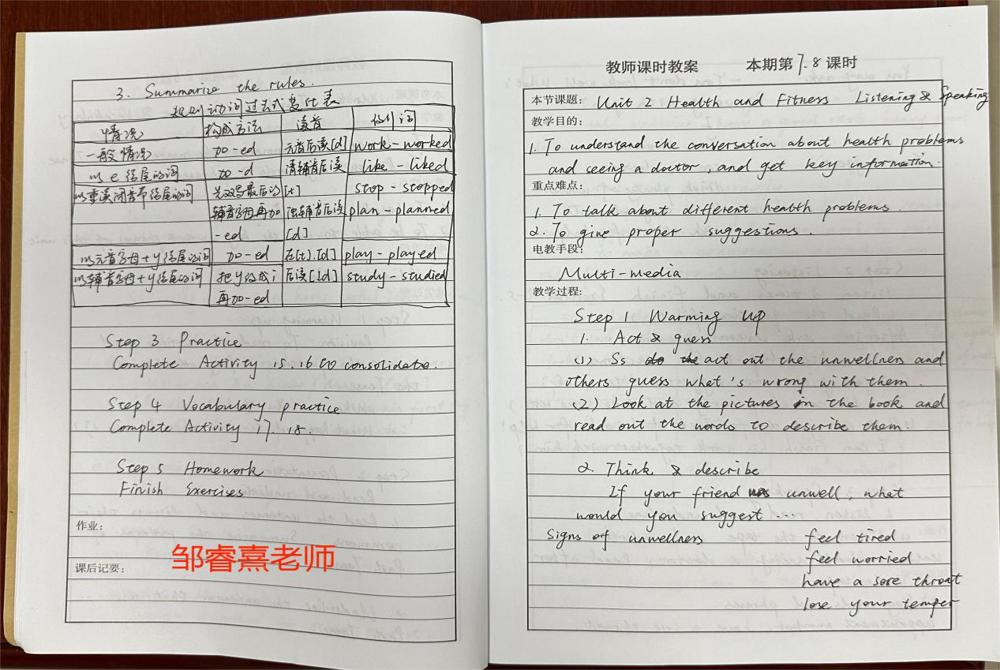 3. Summarize the rules.
规则动词过去式变化表
情况 构成方法 读音 例词
一般情况 加-ed 元音后读[d] work-worked
以e结尾的词 加-d 清辅音后读 like-liked
以重读闭音节结尾的词 先双写最后的 [t] stop-stopped
辅音字母再加 浊辅音后读 plan-planned
-ed [d]
以元音字母+y结尾的词 加-ed 在[t].[d] play-played
以辅音字母+y结尾的词 把y改成i 后读[id] study-studied
再加-ed
Step 3 Practice
Complete Activity 15. 16 to consolidate.
Step 4 Vocabulary practice
Complete Activity 17. 18.
Step 5 Homework
Finish Exercises
作业：
课后记要：
邹睿熹老师
教师课时教案 本期第7.8课时
本节课题： Unit 2 Health and Fitness Listening & Speaking
教学目的：
1. To understand the conversation about health problems
and seeing a doctor, and get key information.
重点难点：
1. To talk about different health problems.
2. To give proper suggestions.
电教手段：
Multi-media
教学过程：
Step 1 Warming up
1. Act & guess
(1) Ss act out the unwellness and
others guess what's wrong with them.
(2) Look at the pictures in the book and
read out the words to describe them.
2. Think & describe
If your friend was unwell, what
would you suggest ...
Signs of unwellness feel tired
feel worried
have a sore throat
lose your temper